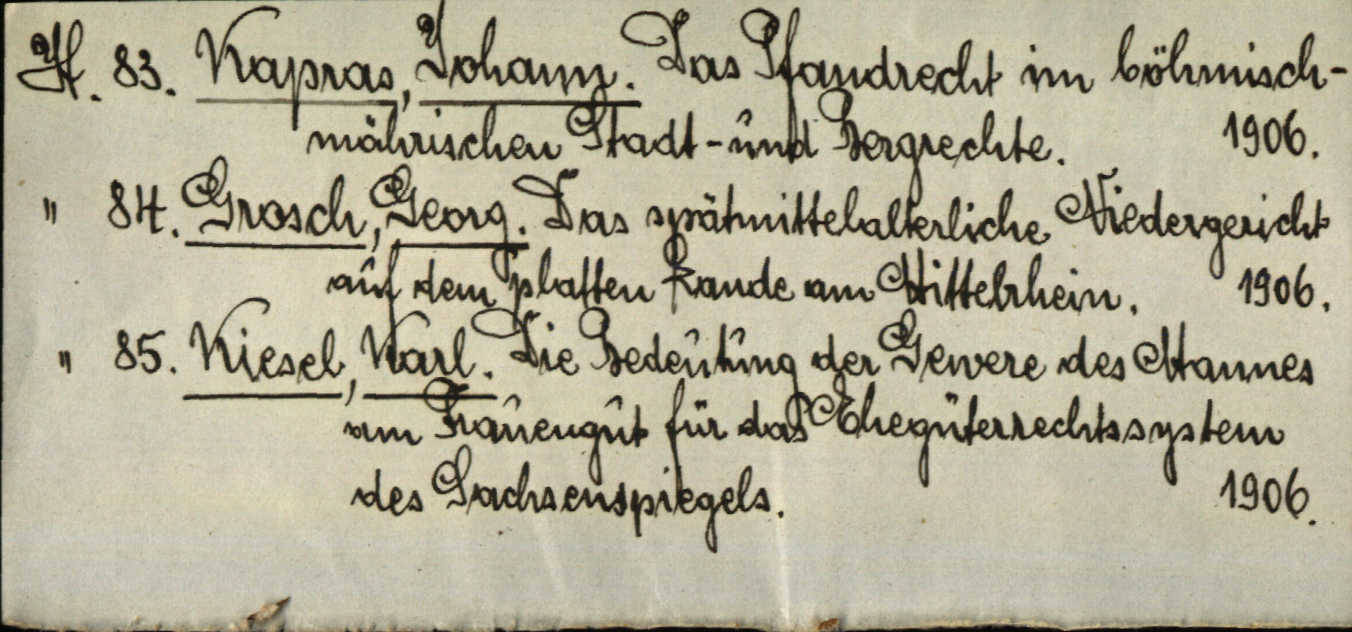 H. 83. Kapras, Johann. Das Pfandrecht im böhmisch-
mährischen Stadt- und Bergrechte. 1906.
" 84. Grosch, Georg. Das spätmittelalterliche Niedergericht
auf dem platten Lande am Mittelrhein. 1906.
" 85. Kiesel, Karl. Die Bedeutung der Gewere des Mannes
am Frauengut für das Ehegüterrechtssystem
des Sachsenspiegels. 1906.